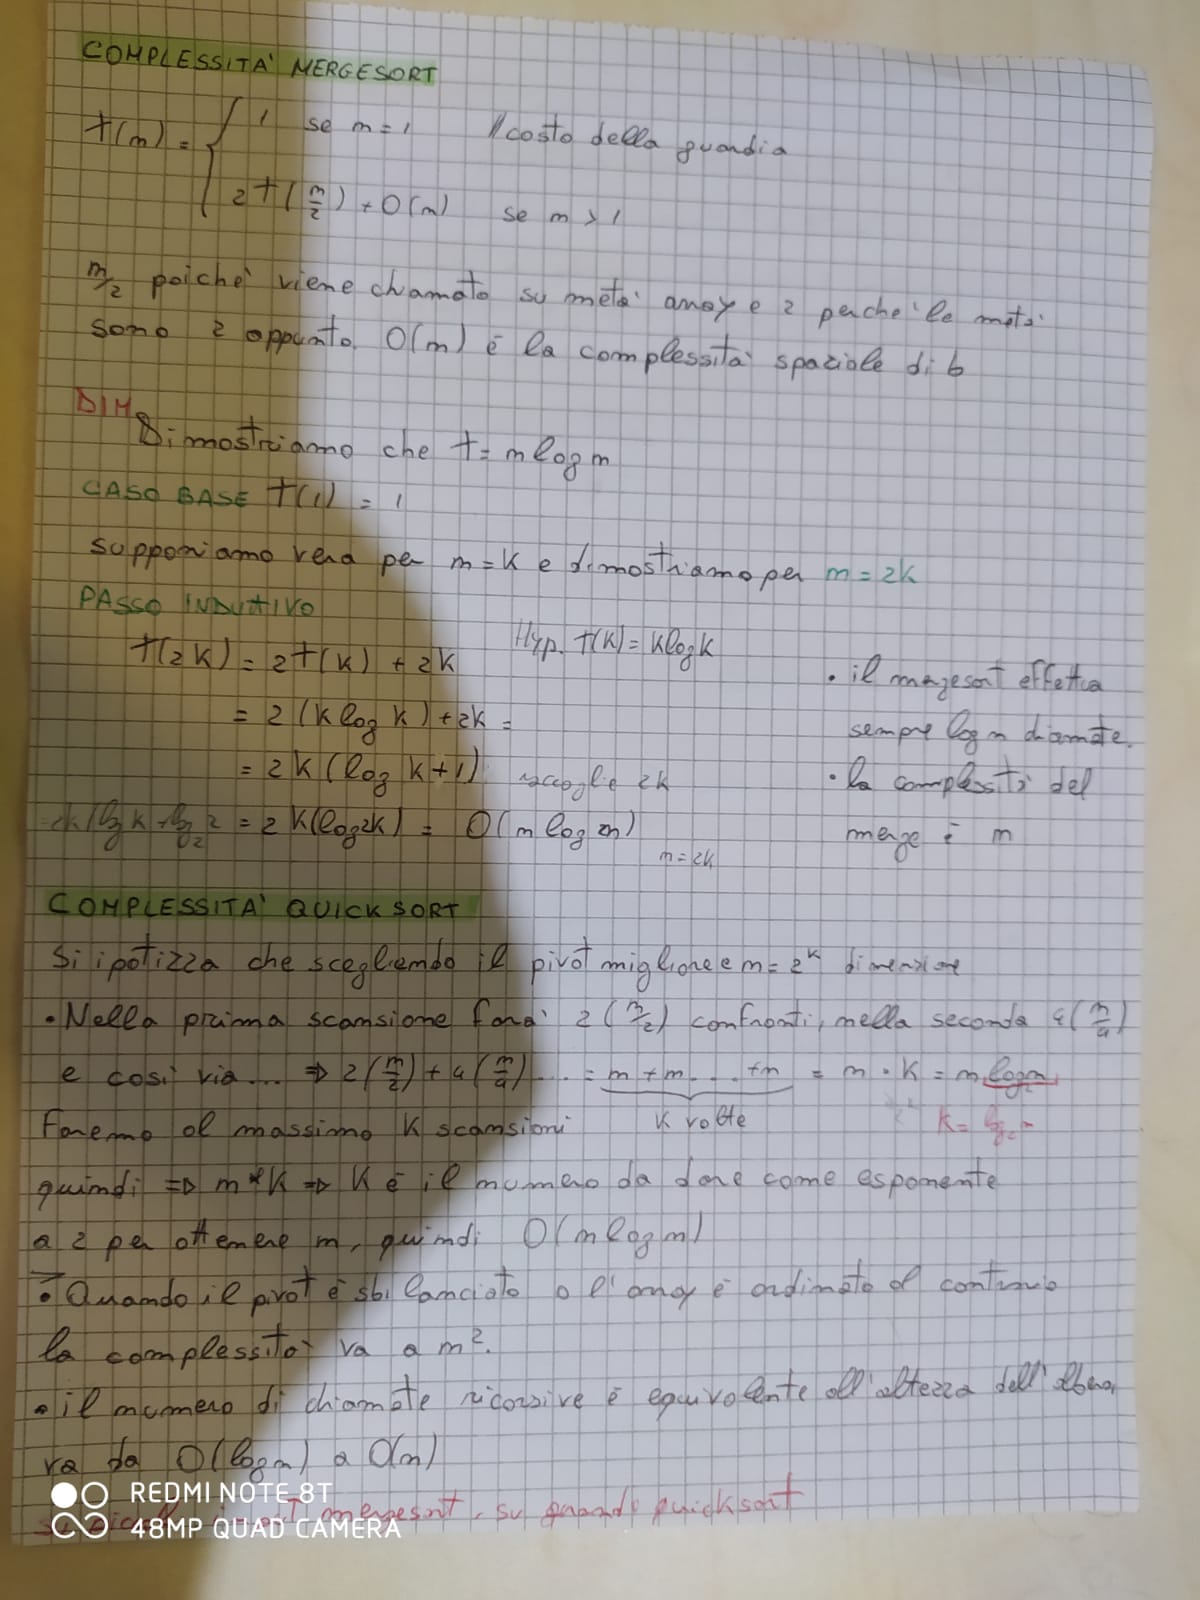 COMPLESSITA' MERGESORT
T(n) = { 1 se n = 1 // costo della guardia
2T(n/2) + O(n) se n > 1
n/2 poiche' viene chiamato su meta' array e 2 perche' le meta'
sono 2 appunto. O(n) è la complessita' spaziale di b
DIM
Dimostriamo che T = n log n
CASO BASE T(1) = 1
supponiamo vera per n = K e dimostriamo per n = 2K
PASSO INDUTTIVO
T(2K) = 2T(K) + 2K Hyp. T(K) = K log K
= 2 (K log K) + 2K =
= 2K (log K + 1) raccoglie 2K
= 2K (log K + log₂ 2 = 2K (log 2K) = O(n log n)
n = 2K
• il mergesort effettua
sempre log n chiamate.
• la complessità del
merge è n
COMPLESSITA' QUICKSORT
Si ipotizza che scegliendo il pivot migliore e n = 2ᴷ dimensione
• Nella prima scansione fara' 2(n/2) confronti, nella seconda 4(n/4)
e cosi via... ⇒ 2(n/2) + 4(n/4) ... = n + n . . . + n = n • K = n log n
K volte K = log₂ n
Faremo al massimo K scansioni
quindi ⇒ n * K ⇒ K è il numero da dare come esponente
a 2 per ottenere n, quindi O(n log n)
• Quando il pivot è sbilanciato o l'array è ordinato al contrario
la complessita' va a n².
• il numero di chiamate ricorsive è equivalente all'altezza dell'albero,
va da O(log n) a O(n)
mergesort, su grandi quicksort
REDMI NOTE 8T
48MP QUAD CAMERA